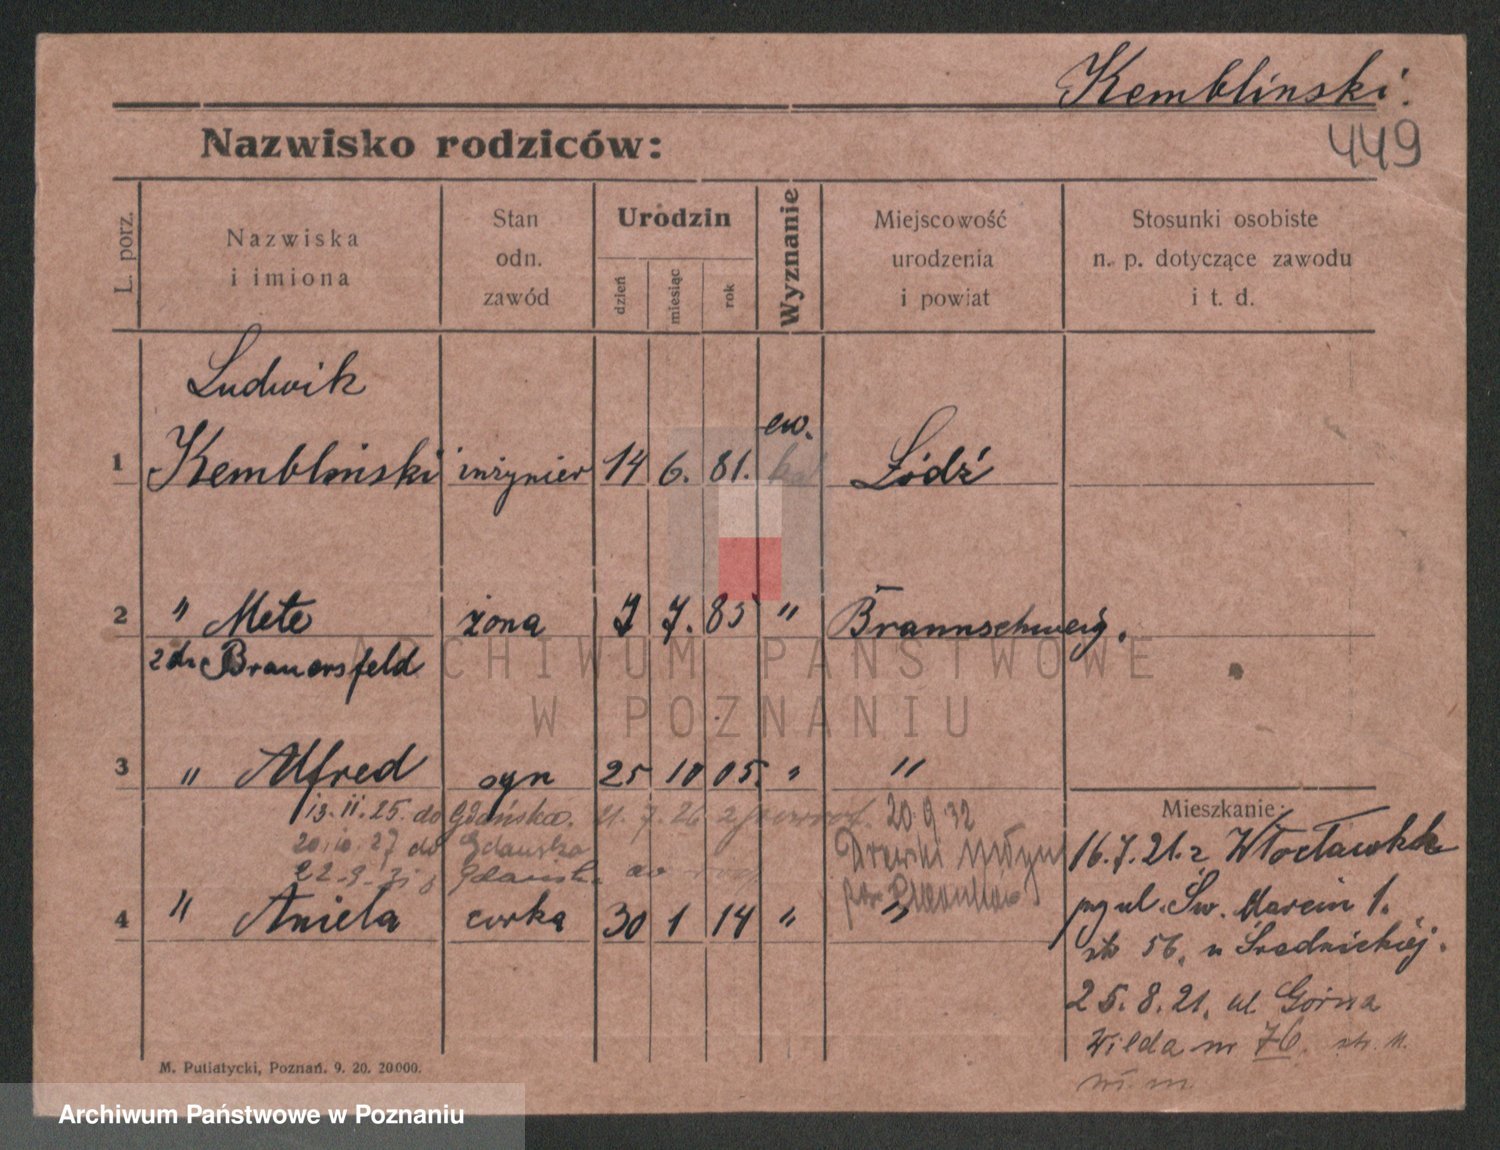 Kemblinski.
449
Nazwisko rodziców:
L. porz.
Nazwiska i imiona
Stan odn. zawód
Urodzin
dzień
miesiąc
rok
Wyznanie
Miejscowość urodzenia i powiat
Stosunki osobiste n. p. dotyczące zawodu i t. d.
Ludwik
ew.
1 Kemblinski inżynier 14 6. 81. Łódź
2 " Mete żona 7 7. 85 " Braunschweig.
zdr Brauersfeld
3 " Alfred syn 25 10 05. " "
Mieszkanie:
13.11.25. do Gdańska. 11.7.26 z 20.9.32
20.10.27 do Gdańska
22.9.31 Gdańsk. do
4 " Aniela curka 30 1 14 " "
16.7.21. z Włocławka
przy ul. Św. Marcin 1.
56. u Średnickiéj.
25.8.21. ul Górna
Wilda nr 76. str. 11.
M. Putiatycki, Poznań. 9. 20. 20000.
ARCHIWUM PAŃSTWOWE
W POZNANIU
Archiwum Państwowe w Poznaniu